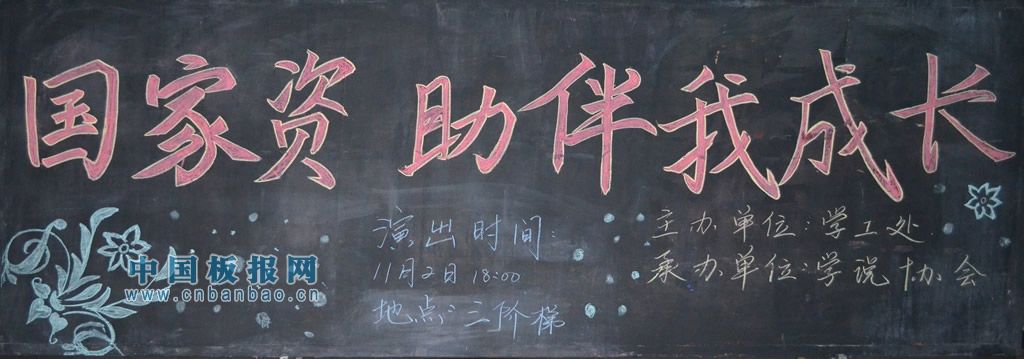 国家资 助伴我成长
演出时间:
11月2日 18:00
地点:三阶梯
主办单位:学工处
承办单位:学说协会
中国板报网
www.cnbanbao.cn